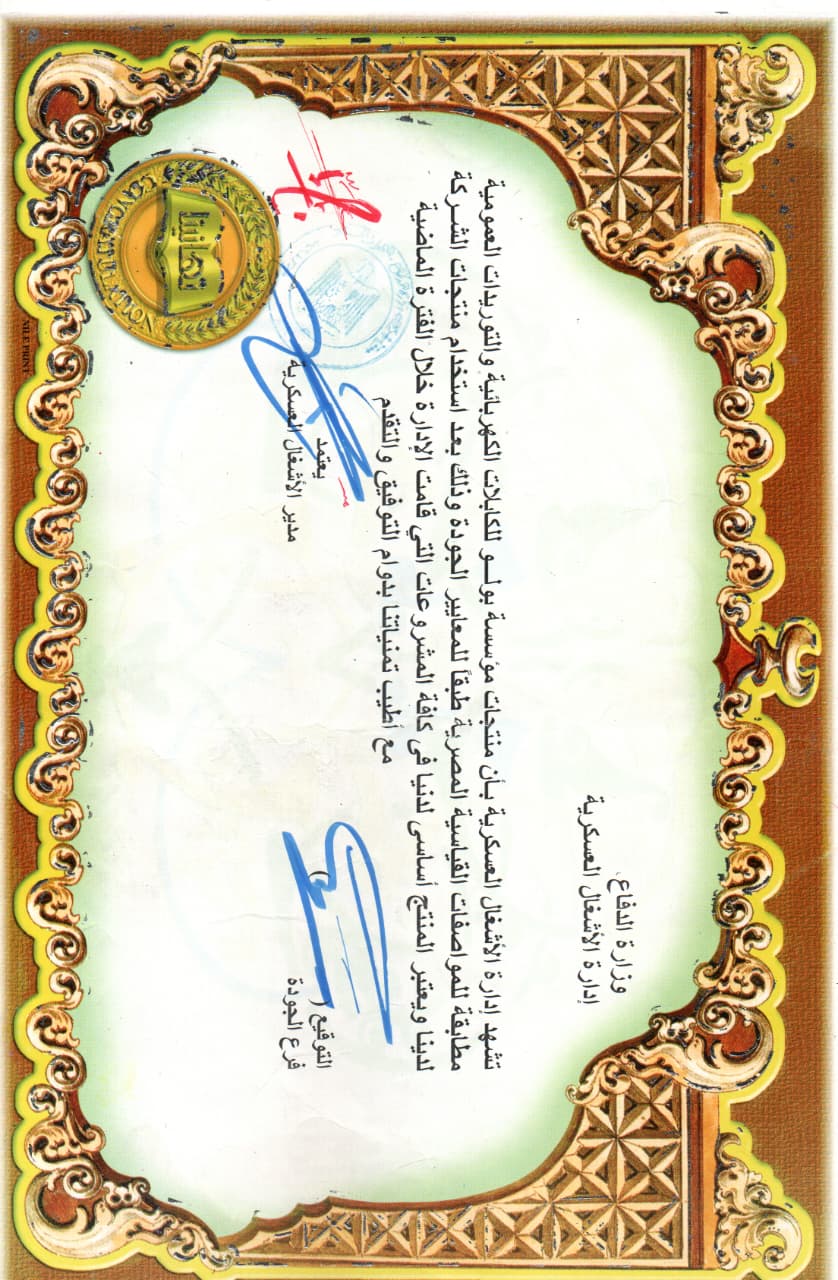 وزارة الدفاع
إدارة الأشغال العسكرية
تشهد إدارة الأشغال العسكرية بأن منتجات مؤسسة بولو للكابلات الكهربائية والتوريدات العمومية
مطابقة للمواصفات القياسية المصرية طبقاً للمعايير الجودة وذلك بعد استخدام منتجات الشركة
لدينا ويعتبر المنتج أساسى لدنيا فى كافة المشروعات التي قامت الإدارة خلال الفترة الماضية
مع أطيب تمنياتنا بدوام التوفيق والتقدم
التوقيع ( )
فرع الجودة
يعتمد
مدير الأشغال العسكرية
تهانينا
CONGRATULATION
NILE PRINT